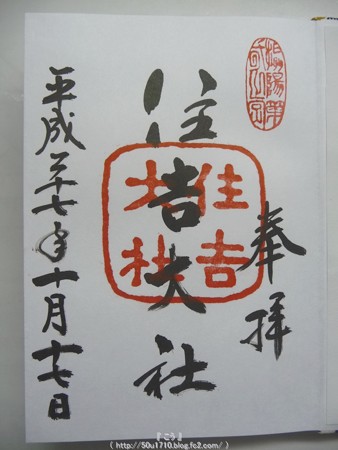 摂陽第一宮
奉拝
住吉大社
住吉大社
平成二十七年十月十七日
『こう』
( http://50u1710.blog.fc2.com/ )